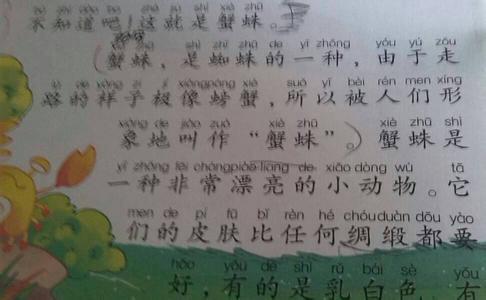 bù zhī dào ba zhè jiù shì xiè zhū
不知道吧！这就是蟹蛛。
zhū shì zhī zhū de yì zhǒng yóu yú zǒu
蟹蛛，是蜘蛛的一种，由于走
lù de yàng zi jí xiàngpáng xiè suǒ yǐ bèi rén men xíng
路的样子极像螃蟹，所以被人们形
xiàng de jiào zuò xiè zhū xiè zhū shì
象地叫作“蟹蛛”。蟹蛛是
yì zhǒng fēi chángpiào liang de xiǎo dòng wù tā
一种非常漂亮的小动物。它
men de pí fū bǐ rèn hé chóuduàn dōu yào
们的皮肤比任何绸缎都要
hǎo yǒu de shì rǔ bái sè yǒu
好，有的是乳白色，有